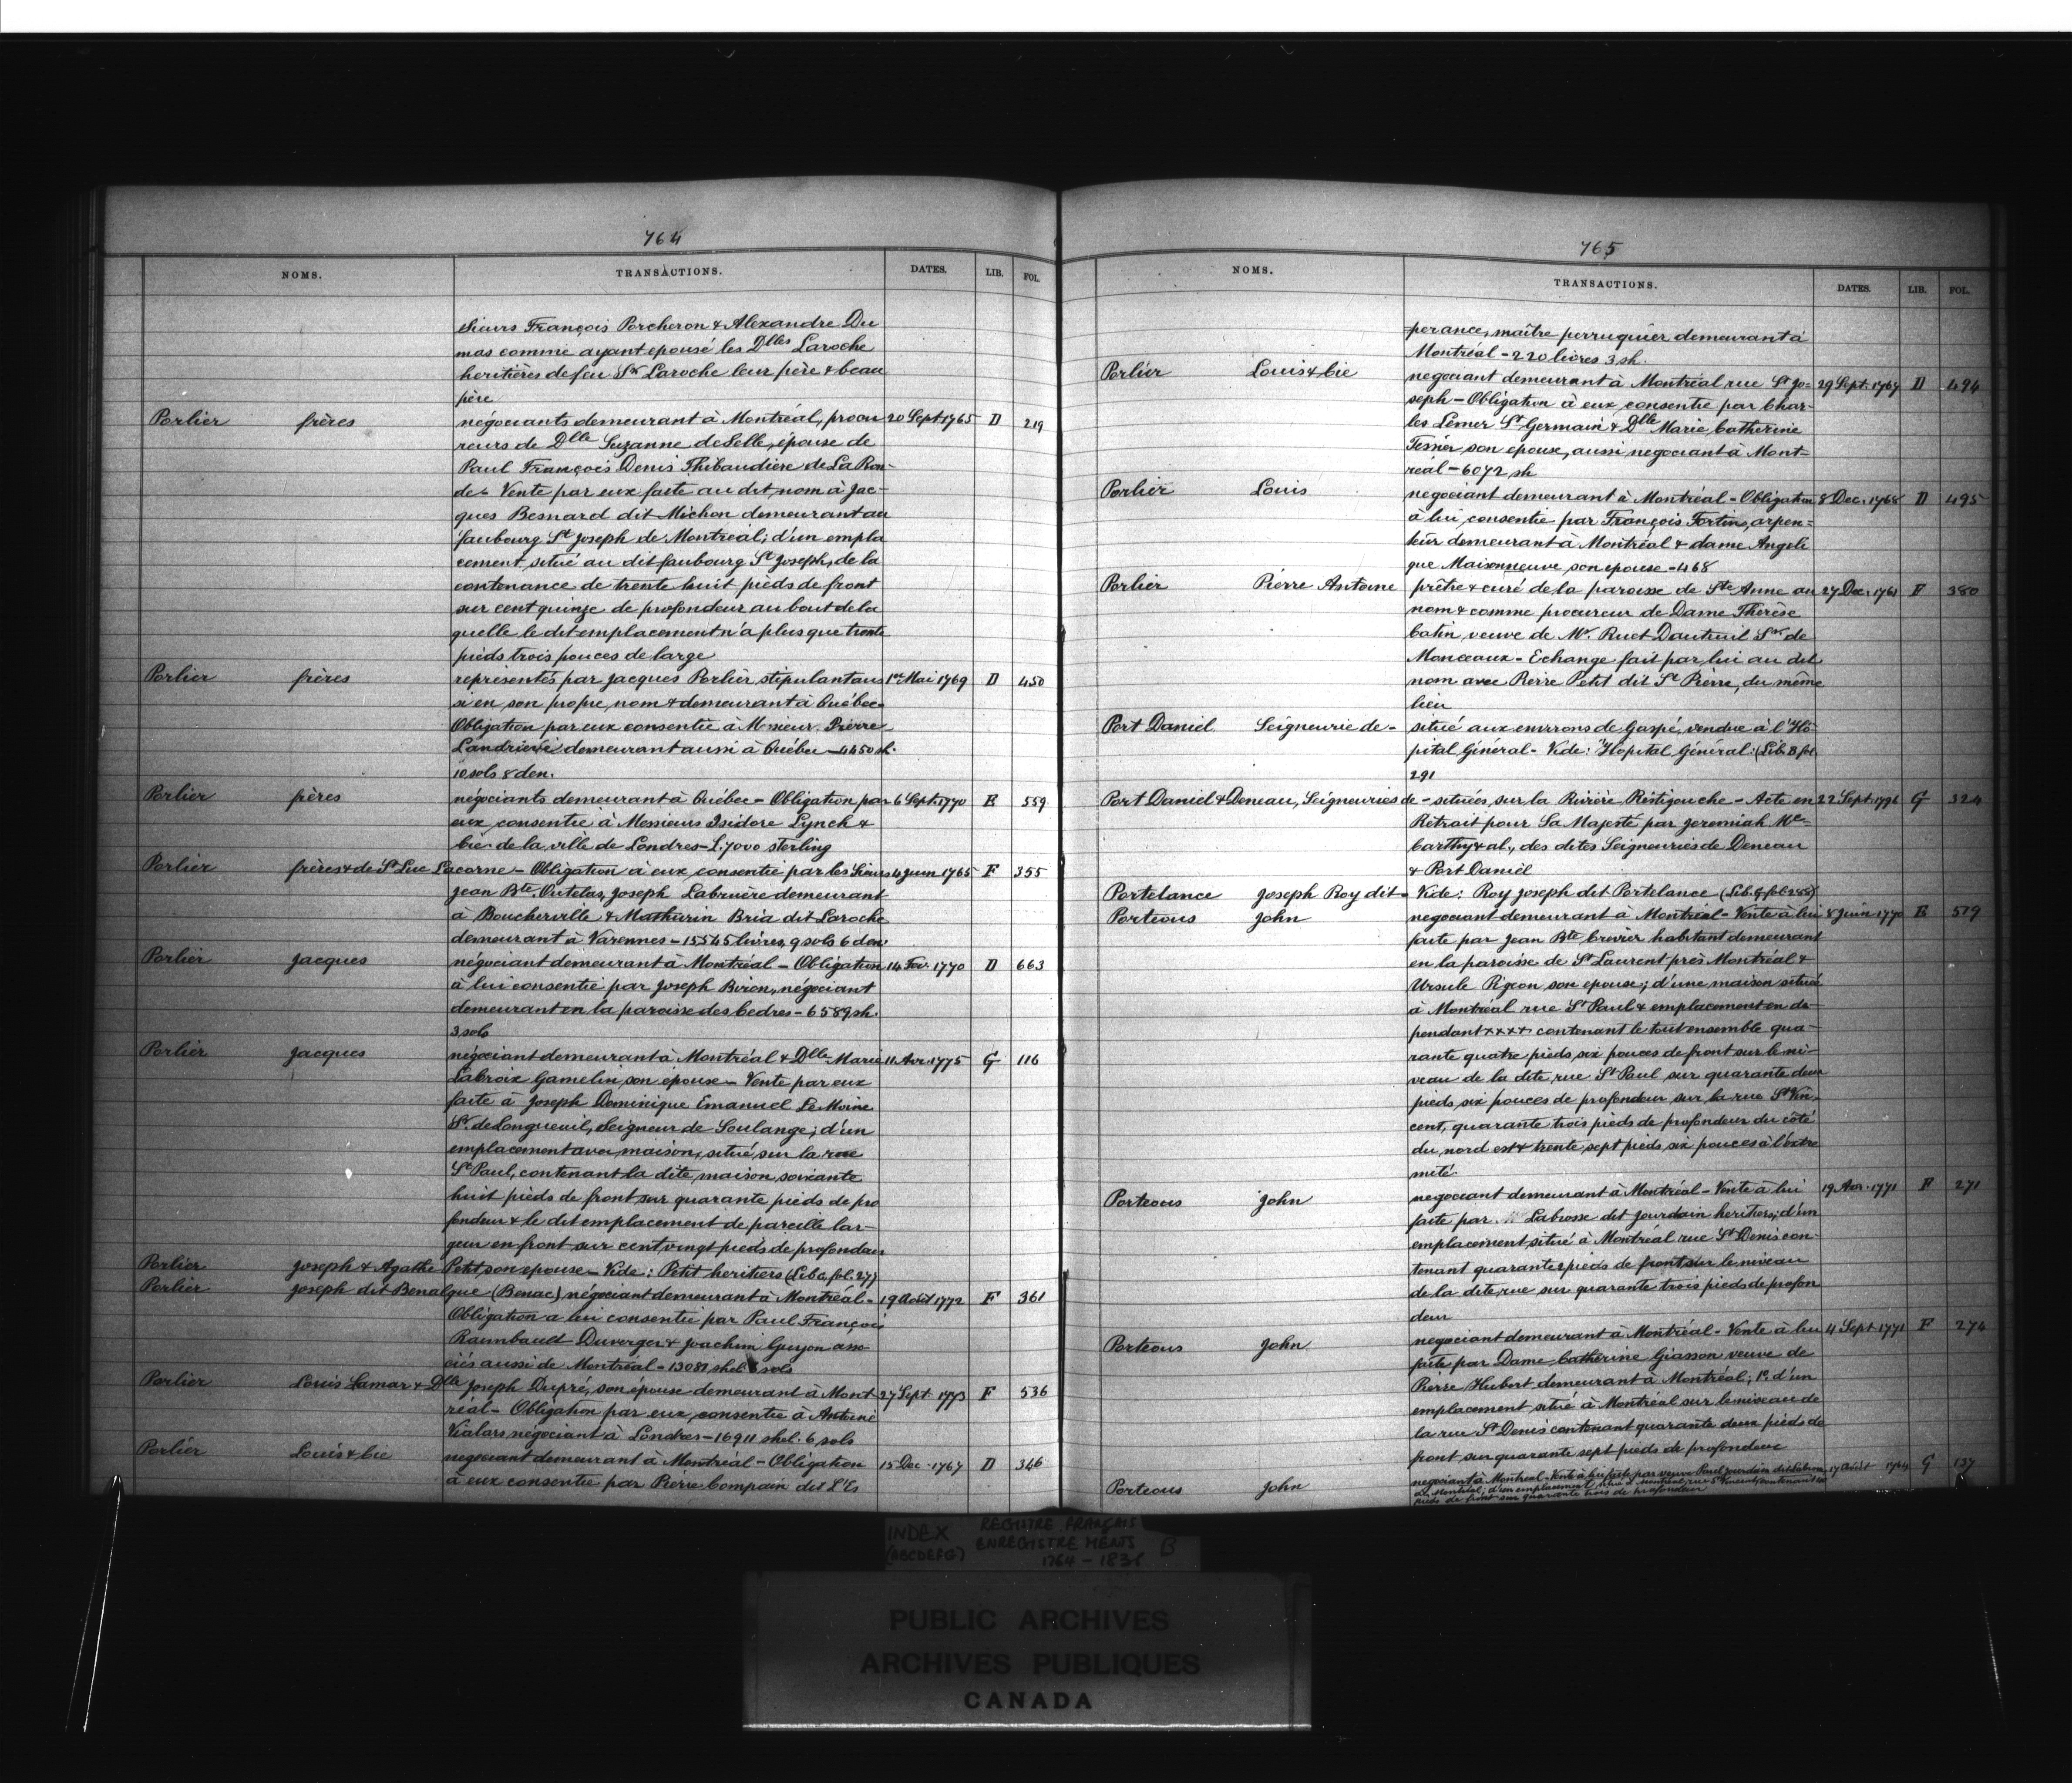 764
NOMS. TRANSACTIONS. DATES. LIB. FOL.
sieurs François Porcheron & Alexandre Du
mas comme ayant epousé les Dlles Laroche
heritières de feu Sr Laroche leur père & beau
père
Porlier frères négociants demeurant à Montréal, procu 20 Sept. 1765 D 219
reurs de Dlle Suzanne deSelle, épouse de
Paul François Denis Thibaudière de La Ron-
de - Vente par eux faite au dit nom à Jac-
ques Besnard dit Michon demeurant au
faubourg St Joseph de Montréal; d'un empla
cement situé au dit faubourg St Joseph, de la
contenance de trente huit pieds de front
sur cent quinze de profondeur au bout de la
quelle le dit emplacement n'a plus que trente
pieds trois pouces de large
Porlier frères représentés par Jacques Porlier, stipulant aus 1er Mai 1769 D 450
si en son propre nom & demeurant à Québec-
Obligation par eux consentie à Monsieur Pierre
Landrière demeurant aussi à Québec - 4450 sh.
10 sols 8 den.
Porlier frères négociants demeurant à Québec - Obligation par 6 Sept. 1770 E 559
eux consentie à Messieurs Isidore Lynch &
Cie. de la ville de Londres - L. 7000 sterling
Porlier frères & de St Luc Lacorne - Obligation à eux consentie par les Sieurs 4 Juin 1765 F 355
Jean Bte. Outelas, Joseph Labruière demeurant
à Boucherville & Mathurin Bria dit Laroche
demeurant à Varennes - 15545 livres, 9 sols 6 den.
Porlier Jacques négociant demeurant à Montréal - Obligation 14 Fev. 1770 D 663
à lui consentie par Joseph Biron, négociant
demeurant en la paroisse des Cedres - 6589 sh.
3 sols
Porlier Jacques négociant demeurant à Montréal & Dlle Marie 11 Avr. 1775 G 116
Labroix Gamelin, son épouse - Vente par eux
faite à Joseph Dominique Emanuel LeMoine
Sr. de Longueuil, Seigneur de Soulange; d'un
emplacement avec maison, situé sur la rue
St Paul, contenant la dite maison soixante
huit pieds de front sur quarante pieds de pro
fondeur & le dit emplacement de pareille lar-
geur en front sur cent vingt pieds de profondeur
Porlier Joseph & Agathe Petit, son epouse - Vide: Petit heritiers (Lib G, fol. 27)
Porlier Joseph dit Benalque (Benac) négociant demeurant à Montréal - 19 Août 1772 F 361
Obligation a lui consentie par Paul François
Raimbault Duverger & Joachim Guyon asso
ciés aussi de Montréal - 13081 shel. 8 sols
Porlier Louis Lamar & Dlle Joseph Dupré, son épouse demeurant à Mont 27 Sept. 1773 F 536
réal - Obligation par eux consentie à Antoine
Vialars, négociant à Londres - 16911 shel. 6 sols
Porlier Louis & Cie negociant demeurant à Montréal - Obligation 15 Dec. 1767 D 346
à eux consentie par Pierre Compain dit L'Es
765
NOMS. TRANSACTIONS. DATES. LIB. FOL.
perance, maître perruquier demeurant à
Montréal - 220 livres 3 sh.
Porlier Louis & Cie negociant demeurant à Montréal rue St Jo- 29 Sept. 1767 D 494
seph - Obligation à eux consentie par Char-
les Lemer St Germain & Dlle Marie Catherine
Tessier son epouse, aussi negociant à Mont-
réal - 6072 sh
Porlier Louis negociant demeurant à Montréal - Obligation 8 Dec. 1768 D 495
à lui consentie par François Fortins, arpen-
teur demeurant à Montréal & dame Angeli
que Maisonneuve son epouse - 468
Porlier Pierre Antoine prêtre & curé de la paroisse de Ste Anne au 27 Dec. 1761 F 380
nom & comme procureur de Dame Thérèse
Catin, veuve de Mr. Ruet Dauteuil Sr. de
Monceaux - Echange fait par lui au dit
nom avec Pierre Petit dit St Pierre, du même
lieu
Port Daniel Seigneurie de - situé aux environs de Gaspé, vendue à l'Hô
pital Général - Vide: "Hopital Général: (Lib. B fol.
291
Port Daniel & Deneau, Seigneuries de - situées, sur la Rivière Restigouche - Acte en 22 Sept. 1796 G 324
Retrait pour Sa Majesté par Jeremiah Mc-
Carthy & al., des dites Seigneuries de Deneau
& Port Daniel
Portelance Joseph Roy dit - Vide: Roy Joseph dit Portelance
Porteous John negociant demeurant à Montréal - Vente à lui 8 Juin 1770 E 519
faite par Jean Bte Crevier habitant demeurant
en la paroisse de St Laurent près Montréal &
Ursule Pigeon son epouse; d'une maison située
à Montréal rue St Paul & emplacement en de
pendant ×××× contenant le tout ensemble qua-
rante quatre pieds, six pouces de front sur le ni-
veau de la dite rue St Paul sur quarante deux
pieds, six pouces de profondeur sur la rue St Vin-
cent, quarante trois pieds de profondeur du côté
du nord est & trente sept pieds, six pouces à l'extre
mité
Porteous John negociant demeurant à Montréal - Vente à lui 19 Avr. 1771 F 271
faite par Labrosse dit Jourdain heritiers; d'un
emplacement situé à Montréal rue St Denis con-
tenant quarante pieds de front sur le niveau
de la dite rue sur quarante trois pieds de profon
deur
Porteous John negociant demeurant à Montréal - Vente à lui 4 Sept. 1771 F 274
faite par Dame Catherine Giasson veuve de
Pierre Hubert demeurant à Montréal; 1o. d'un
emplacement situé à Montréal sur le niveau de
la rue St Denis contenant quarante deux pieds de
front sur quarante sept pieds de profondeur
Porteous John negociant à Montréal - Vente à lui faite par veuve Paul Jourdain dit Labrosse 17 Août G 137
de Montréal; d'un emplacement situé à Montréal, rue St Vincent, contenant
pieds de front sur quarante trois de profondeur
INDEX REGISTRE FRANÇAIS
(ABCDEFG) ENREGISTREMENTS B
1764 - 183
PUBLIC ARCHIVES
ARCHIVES PUBLIQUES
CANADA